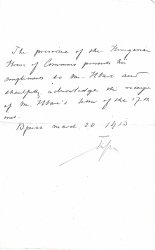 The      of the Hungarian
House of Commons presents his
compliments to Mr.      and
thankfully acknowledges the receipt
of Mr.      letter of the 17.th
inst.
     March 20 1913